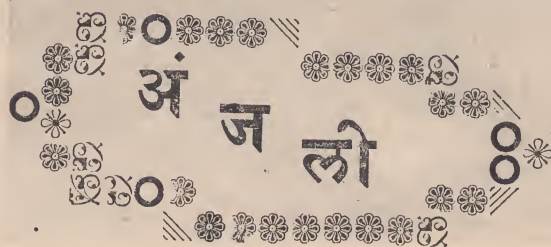 अंजलो